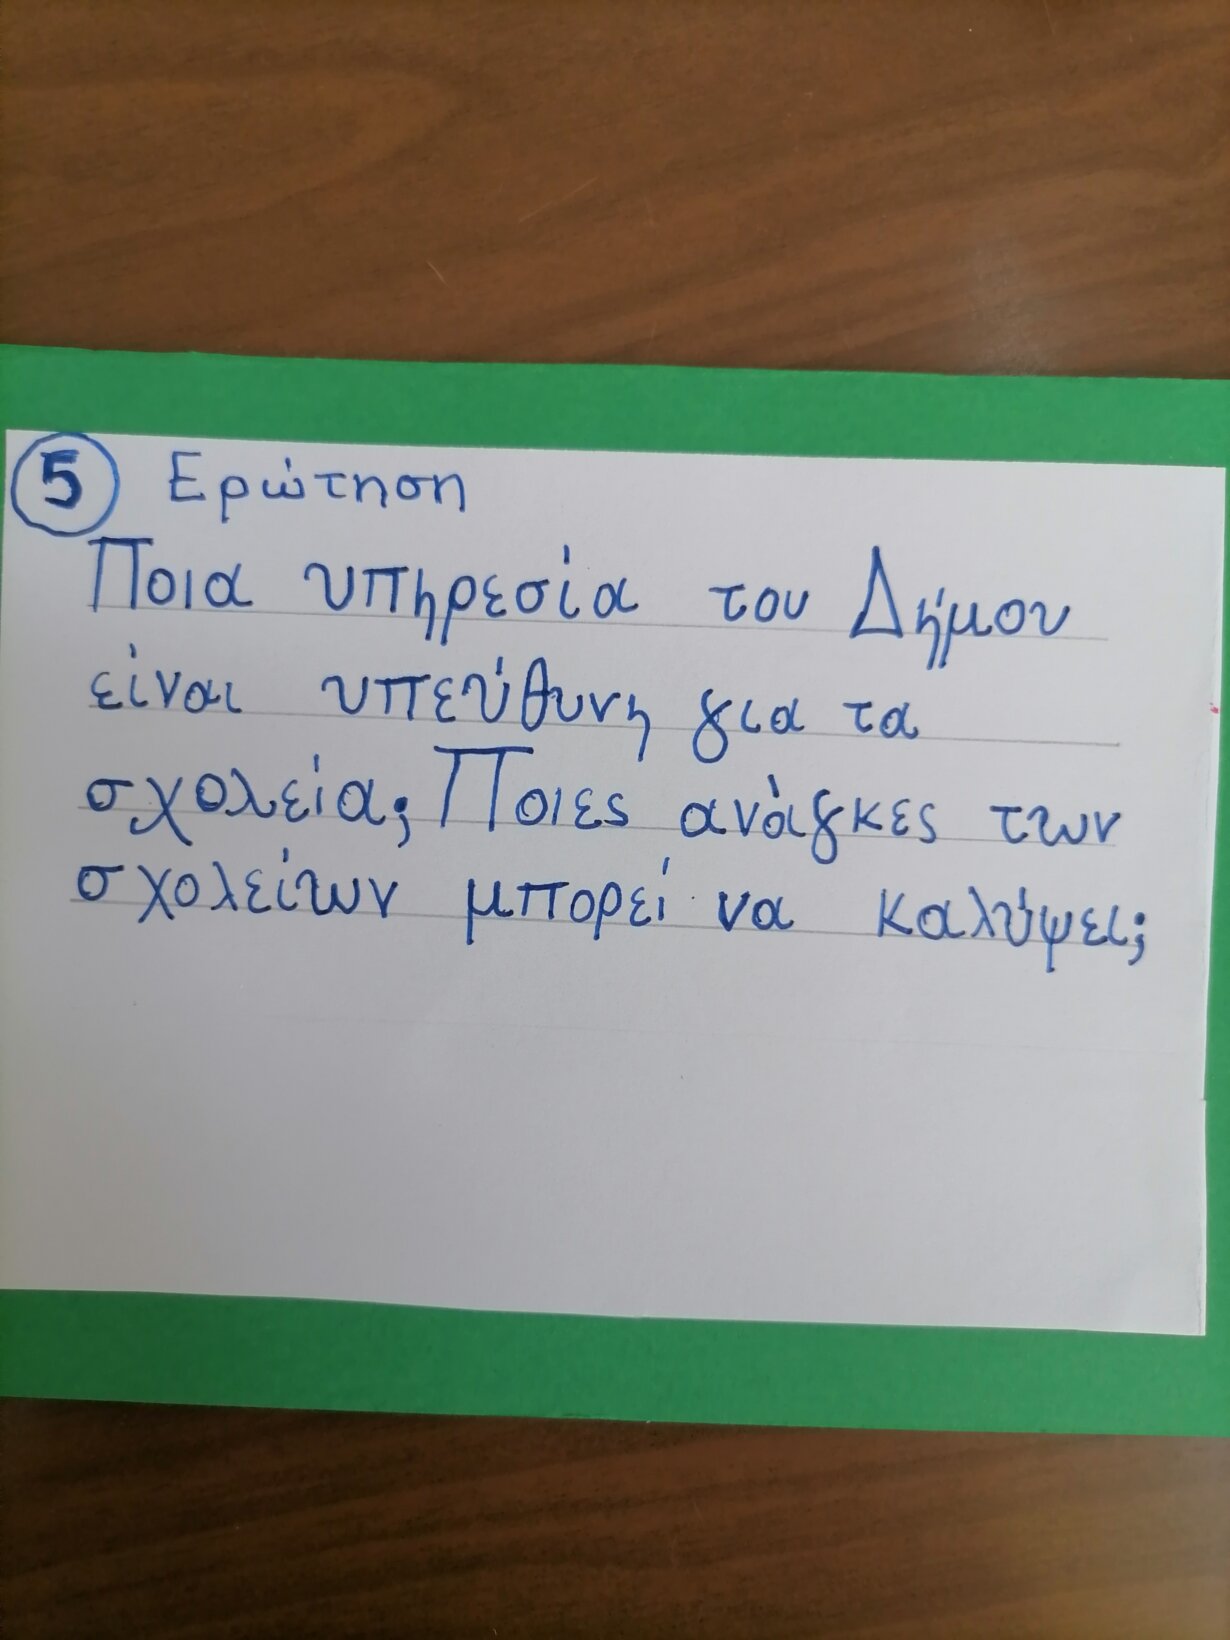 5 Ερώτηση
Ποια υπηρεσία του Δήμου
είναι υπεύθυνη για τα
σχολεία; Ποιες ανάγκες των
σχολείων μπορεί να καλύψει;